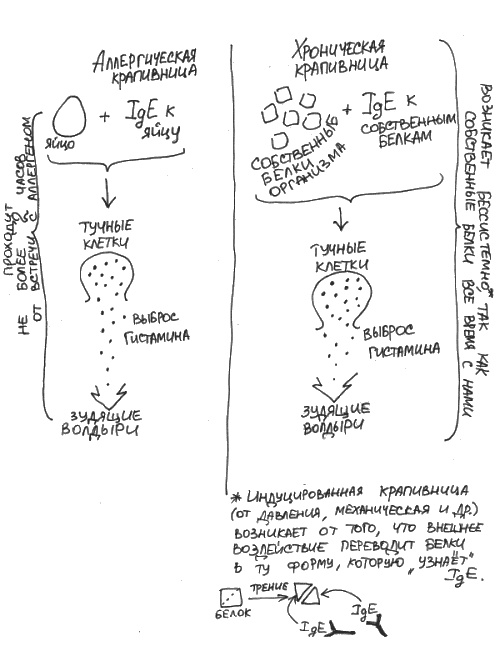 Аллергическая
крапивница
яйцо
+
IgE к
яйцу
проходит
не более часов
от встречи с аллергеном
тучные
клетки
выброс
гистамина
зудящие
волдыри
Хроническая
крапивница
собственные
белки
организма
+
IgE к
собственным
белкам
возникает бессистемно* так как
собственные белки все время с нами
тучные
клетки
выброс
гистамина
зудящие
волдыри
* Индуцированная крапивница
(от давления, механическая и др.)
возникает от того, что внешнее
воздействие переводит белки
в ту форму, которую "узнаёт"
IgE.
белок
трение
IgE
IgE